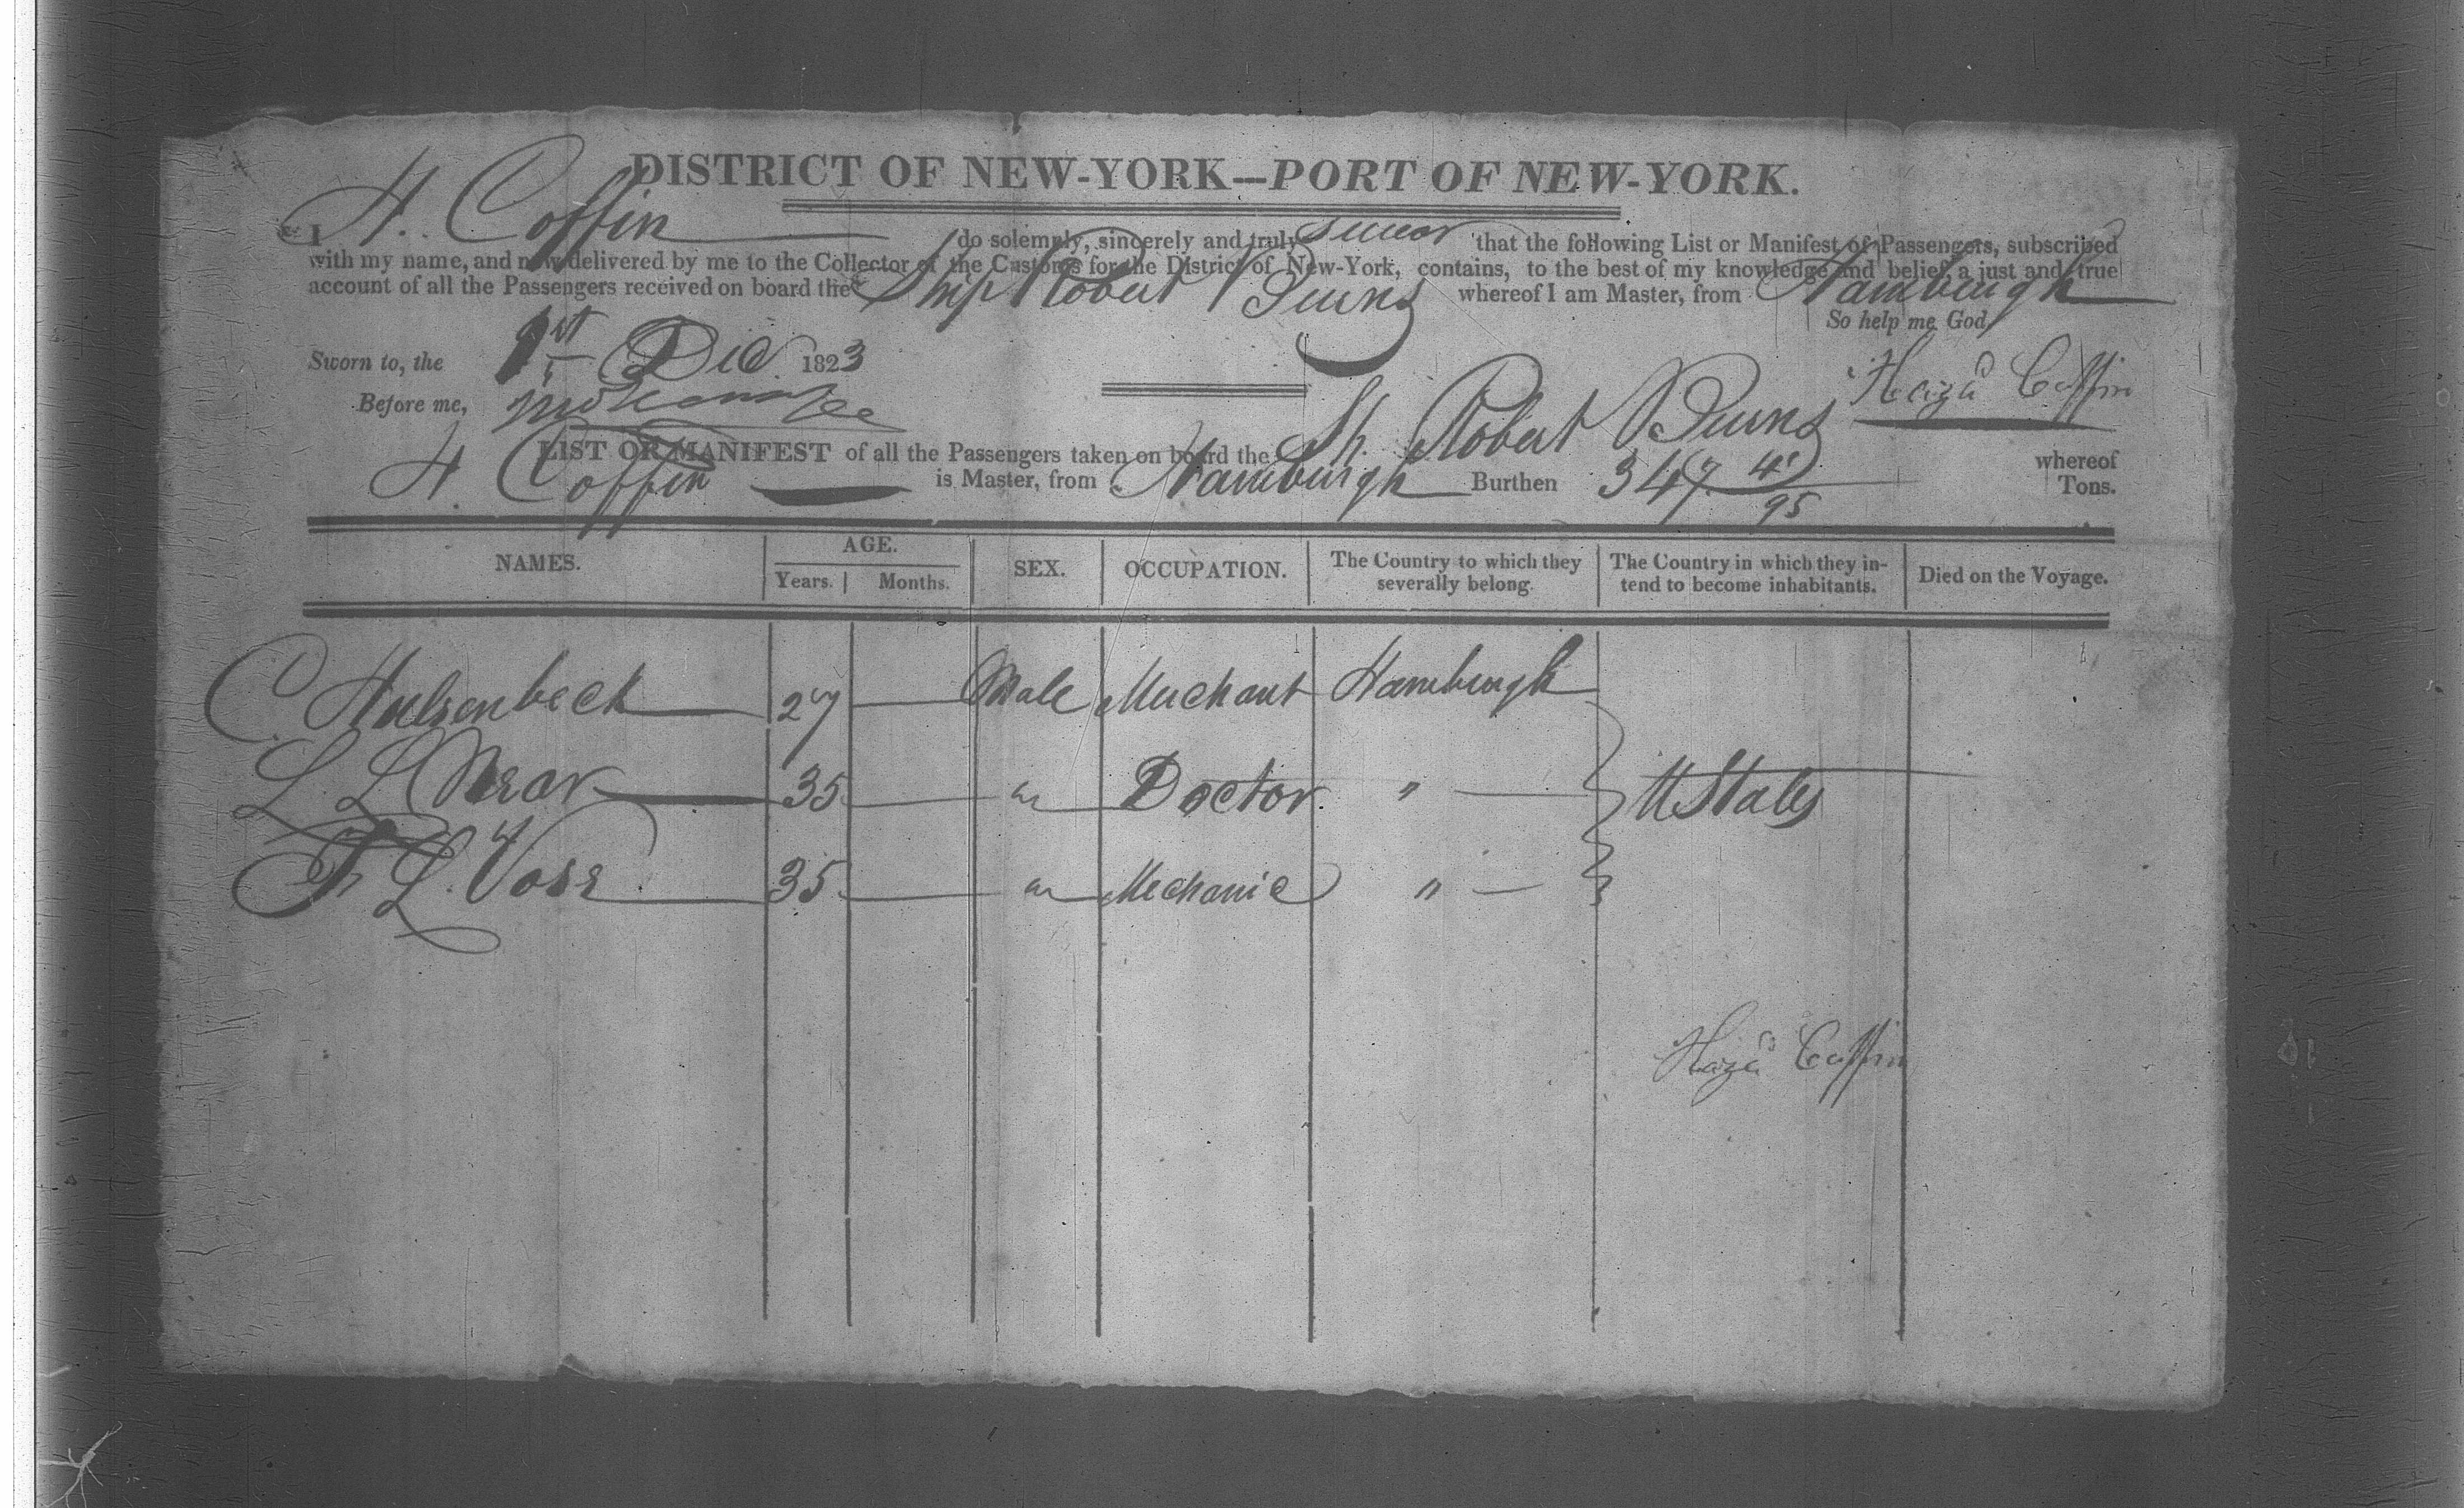 DISTRICT OF NEW-YORK—PORT OF NEW-YORK.
I H. Coffin do solemnly, sincerely and truly swear that the following List or Manifest of Passengers, subscribed
with my name, and now delivered by me to the Collector of the Customs for the District of New-York, contains, to the best of my knowledge and belief, a just and true
account of all the Passengers received on board the Ship Robert Burns whereof I am Master, from Hamburgh
So help me God,
Sworn to, the 1st Dec. 1823
Hezd Coffin
Before me,
LIST OR MANIFEST of all the Passengers taken on board the Sh. Robert Burns whereof
H. Coffin is Master, from Hamburgh Burthen 347 Tons.
NAMES. AGE. Years. Months. SEX. OCCUPATION. The Country to which they severally belong. The Country in which they intend to become inhabitants. Died on the Voyage.
C. Hulsenbeck 27 Male Merchant Hamburgh
L. L. 35 " Doctor " U States
F. L. Voss 35 " Mechanic "
Hezd Coffin